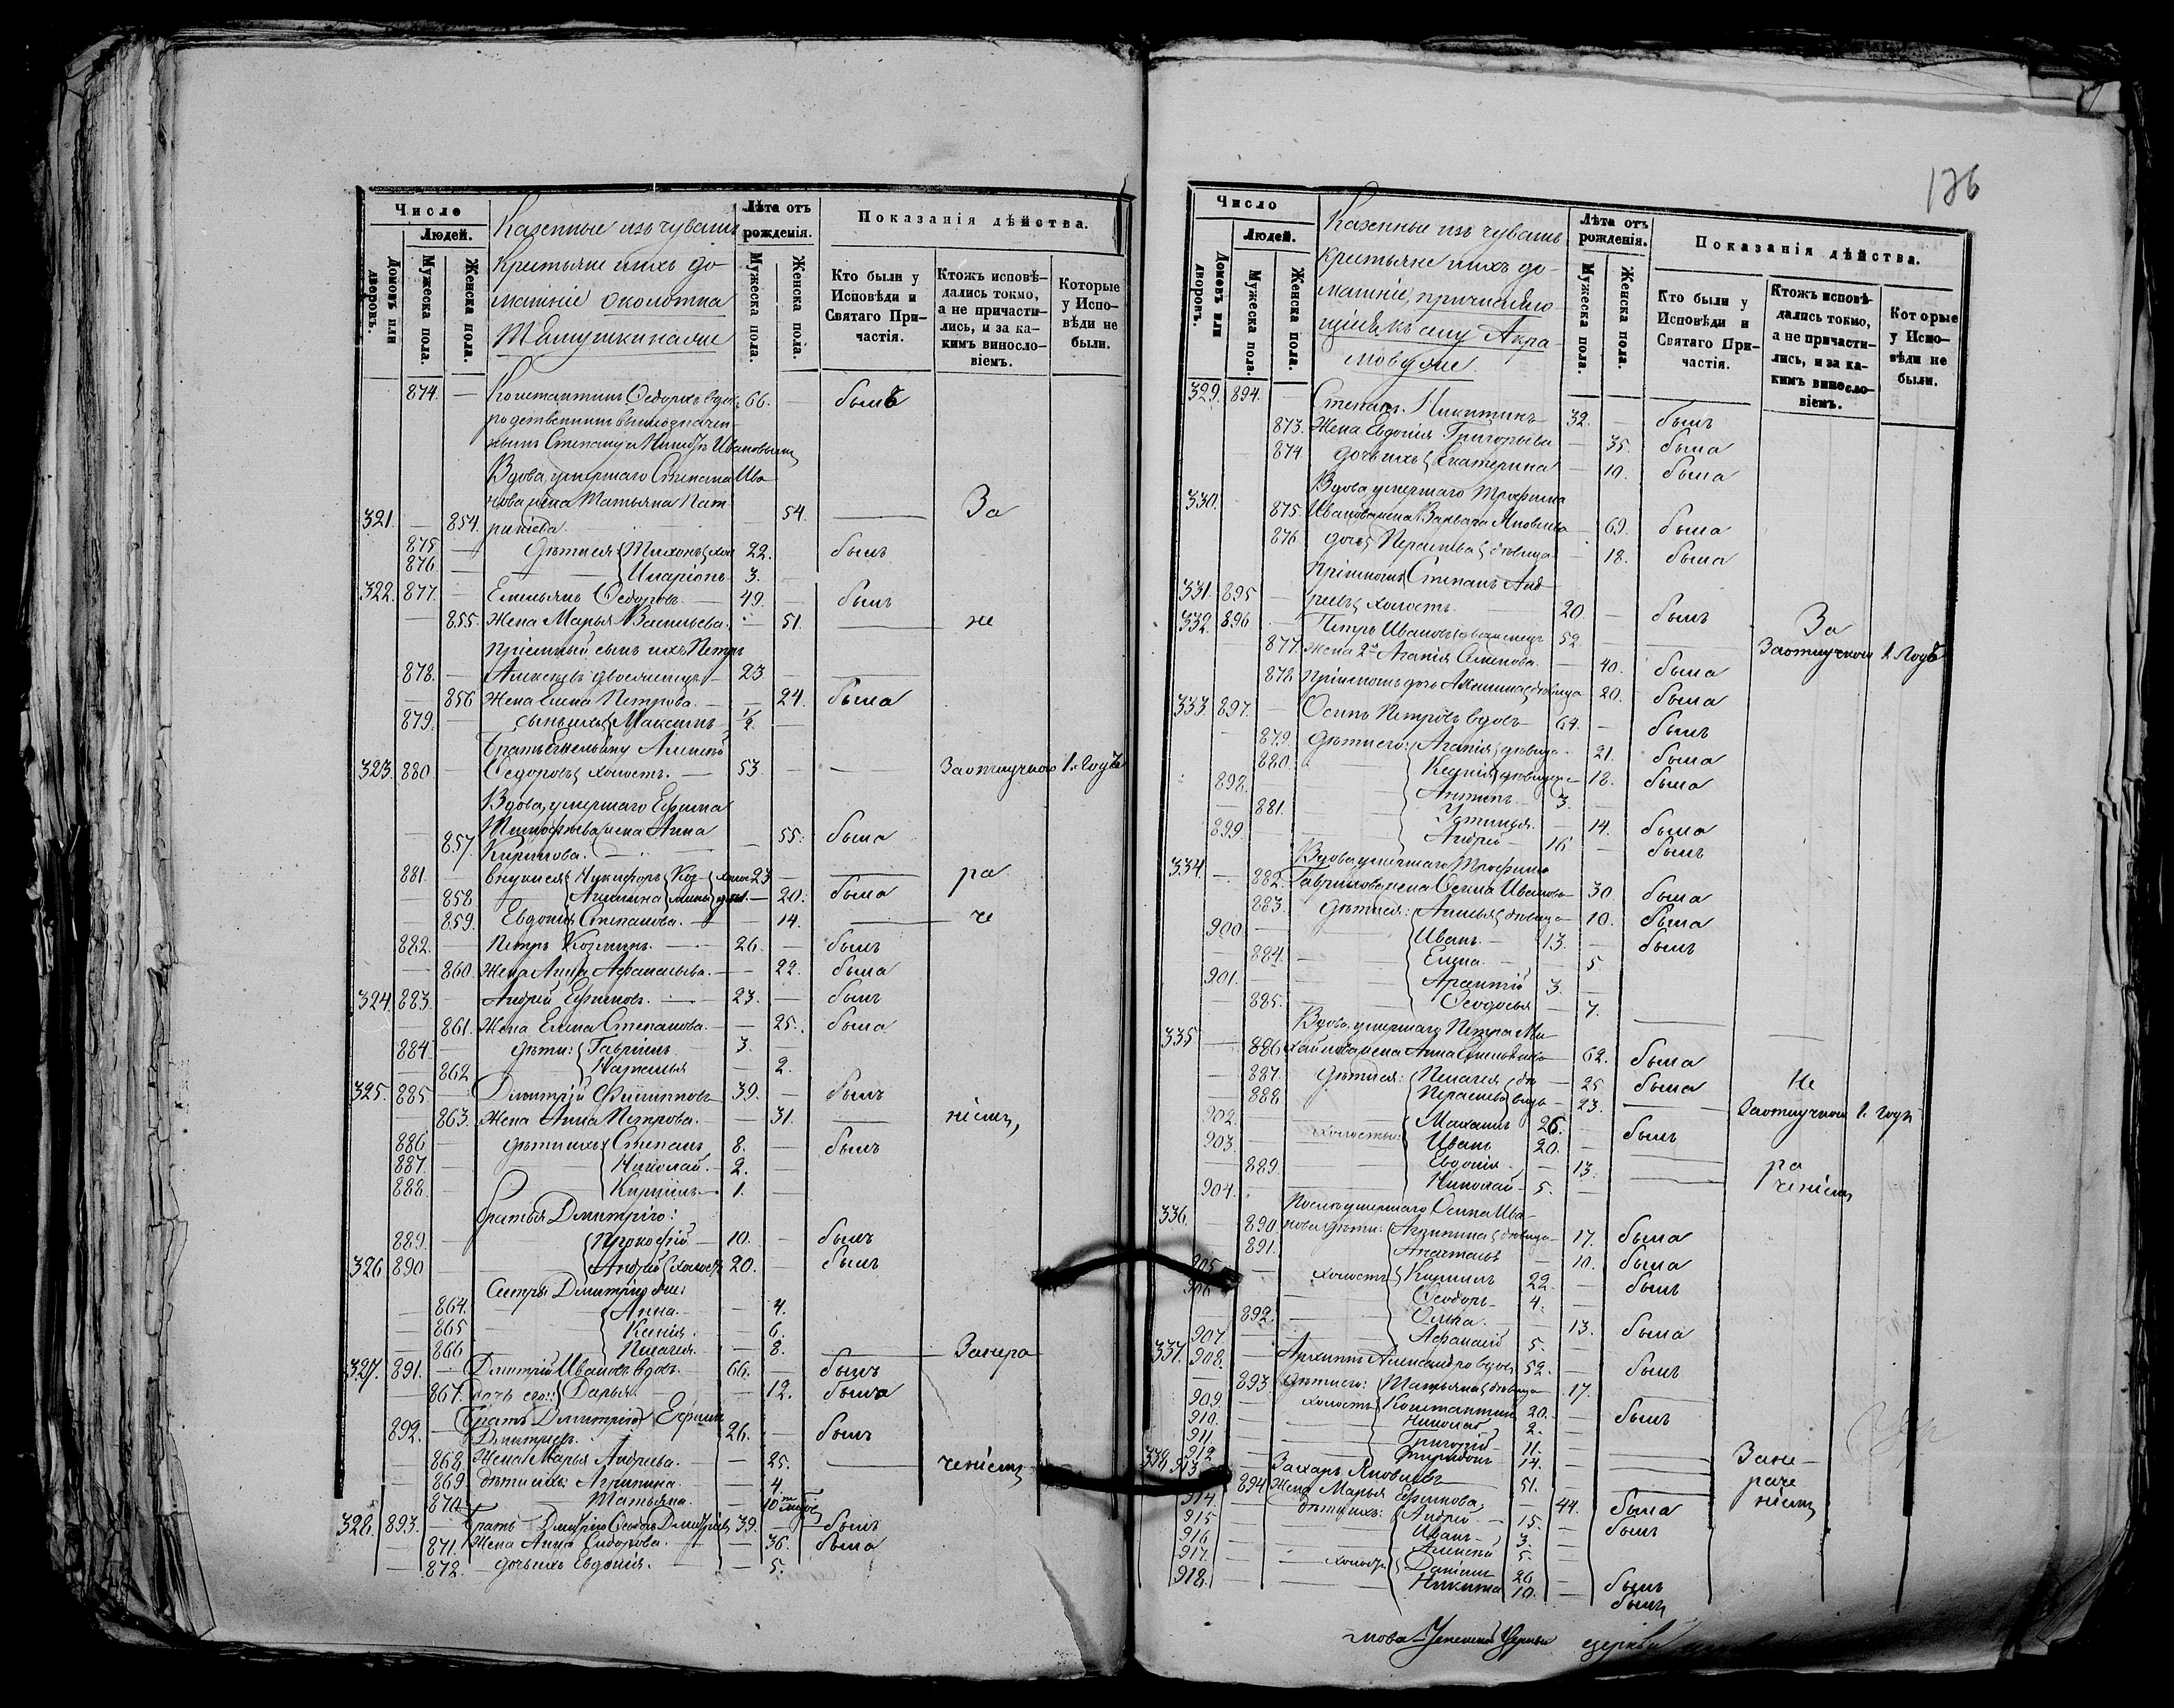 Число
Людей.
Домовъ или дворовъ.
Мужеска пола.
Женска пола.
Казенные изъ чувашъ
крестьяне и ихъ до-
машніе околотка
Лѣта отъ рожденія.
Мужеска пола.
Женска пола.
Показанія дѣйства.
Кто были у Исповѣди и Святаго Причастія.
Ктожъ исповѣдались токмо, а не причастились, и за какимъ винословіемъ.
Которые у Исповѣди не были.
874. — Константинъ Ѳедоровъ вдов 66. — былъ
родственникъ вышеозначен-
нымъ Степану и Ивановымъ
Вдова, умершаго Степана Ива-
нова жена Татьяна Пат-
321. — 854. рикіева. 54. — За
875. — дѣти ея: Тихонъ хол 22. былъ
876. — Иларіонъ 3. —
322. 877. — Емельянъ Ѳедоровъ — 49. — былъ
— 855. Жена Марья Васильева. — 51. — не
Пріемный сынъ ихъ Петръ
878. — Алексѣевъ 23 — —
— 856 Жена Елена Петрова. — 24. была
879. — сынъ ихъ Максимъ 1/2 —
Братъ Емельяну Алексѣй
323. 880. — Ѳедоровъ холостъ. — 53. — За отлучкою 1. годъ
Вдова, умершаго Ефима
Тимофѣева жена Анна
— 857. Кирилова. — 55. была
881. — внуки ея Никифоръ 23 — — ра
— 858 Акилина — 20. была
— 859. Евдокія Степанова. — 14. — че
882. — Петръ Козминъ. — 26. — былъ
— 860. Жена Анна Афанасьева. — 22. была
324. 883. — Андрей Ефимовъ. — 23. — былъ
— 861. Жена Елена Степанова. — 25. была
884. — дѣти: Гавріилъ 3. —
— 862 Наталья — 2.
325. 885 — Дмитрій Филипповъ 39. — былъ
— 863. Жена Анна Петрова. — 31. — ніемъ,
886 — дѣти ихъ Степанъ 8. — былъ
887. — Николай. — 2. —
888. — Кириллъ — 1. —
братья Дмитрію:
889. — Прокофій — 10. — былъ
326. 890 — Андрей холостъ 20. — былъ
Сестры Дмитрію же:
— 864. Анна. — 4.
— 865 Ксенія. — 6.
— 866 Пелагея. — 8. — За нера
327. 891. — Дмитрій Ивановъ вдовъ. 66. — былъ
— 867. Дочь его: Дарья. — 12. была
Братъ Дмитрію Ефимъ
892. — Дмитріевъ. — 26. — былъ
— 868. Жена Марья Андреева. — 25. — ченіемъ
— 869. дѣти ихъ: Агрипина. — 4.
870. Татьяна. — 10
328. 893. — Братъ Дмитрію Ѳедоръ Дмитріевъ 39. — былъ
— 871. Жена Анна Сидорова. — 36. была
— 872. — дочь ихъ Евдокія. — 5.
136
Число
Людей.
Домовъ или дворовъ.
Мужеска пола.
Женска пола.
Казенные изъ чувашъ
крестьяне и ихъ до-
машніе, причисляю-
щіеся къ селу Акра-
мову
Лѣта отъ рожденія.
Мужеска пола.
Женска пола.
Показанія дѣйства.
Кто были у Исповѣди и Святаго Причастія.
Ктожъ исповѣдались токмо, а не причастились, и за какимъ винословіемъ.
Которые у Исповѣди не были.
329. 894. — Степанъ Никитинъ 32. — былъ
873. Жена Евдокія Григорьева — 35. была
874 дочь ихъ Екатерина — 10. была
Вдова, умершаго Трофима
330. — 875. Иванова жена Варвара Яковлева — 69. была
876. дочь Параскева дѣвица — 18. была
Пріемышъ Степанъ Анд-
331. 895 — реевъ холостъ. 20. — былъ За
332. 896 — Петръ Ивановъ 52. — — За отлучкою 1. годъ
877. Жена 2я Агапія Семенова. — 40. была
878. пріемышъ дочь Акилина дѣвица 20. была
333. 897. — Осипъ Петровъ вдовъ — 64. — былъ
879. дѣти его: Агапія дѣвица — 21. была
880. — Ксенія дѣвица — 18. была
898. — Антипъ 3. —
— 881. — Устинья. — 14. была
899. — Андрей — 16 — былъ
Вдова умершаго Трофима
334. — 882. Гаврилова жена Ѳекла Иванова 30. была
883. дѣти ея: дѣвица — 10. была
900. — Иванъ — 13. — былъ
— 884. — Елена. — 5.
901. — 3. —
— 885. — Ѳеодосья — 7.
Вдова, умершаго Петра Ми-
335 — 886 хайлова жена Анна 62. была
— 887. дѣти ея: Пелагея — 25 была Не
— 888 Параскева 23. — За отлучкою 1. годъ
902. — холосты: Михаилъ 26. — былъ
903. — Иванъ 20. —
— 889 — Евдокія — 13. — ра
904. — Николай — 5. — ченіемъ
Послѣ умершаго Осипа Ива-
336. — 890. нова дѣти: Агрипина дѣвица — 17. была
891. — 10. была
905. — холостъ Кириллъ 22. — былъ
906. — Ѳеодоръ — 4. —
— 892. — Ольга. — 13. была
907. — Афанасій 5. —
337. 908. — Архипъ Александровъ вдовъ 52. — былъ
— 893. дѣти его: Татьяна дѣвица — 17. —
909. — холостъ Константинъ 20. — былъ
910. — Николай 2. —
911. — Григорій — 11. — — За не-
912 — Спиридонъ — 14. — — раче
338. 913 — Захаръ Яковлевъ 51. — — ніемъ
— 894 Жена Марья Ефимова, — 44. была
914. — дѣти ихъ: Андрей — 15. — былъ
915 — Иванъ — 3. —
916 — Алексѣй 5. —
917. — холостъ Даніилъ 26 — былъ
918. — Никита 10. — былъ
мова Успенской Церкви церкви